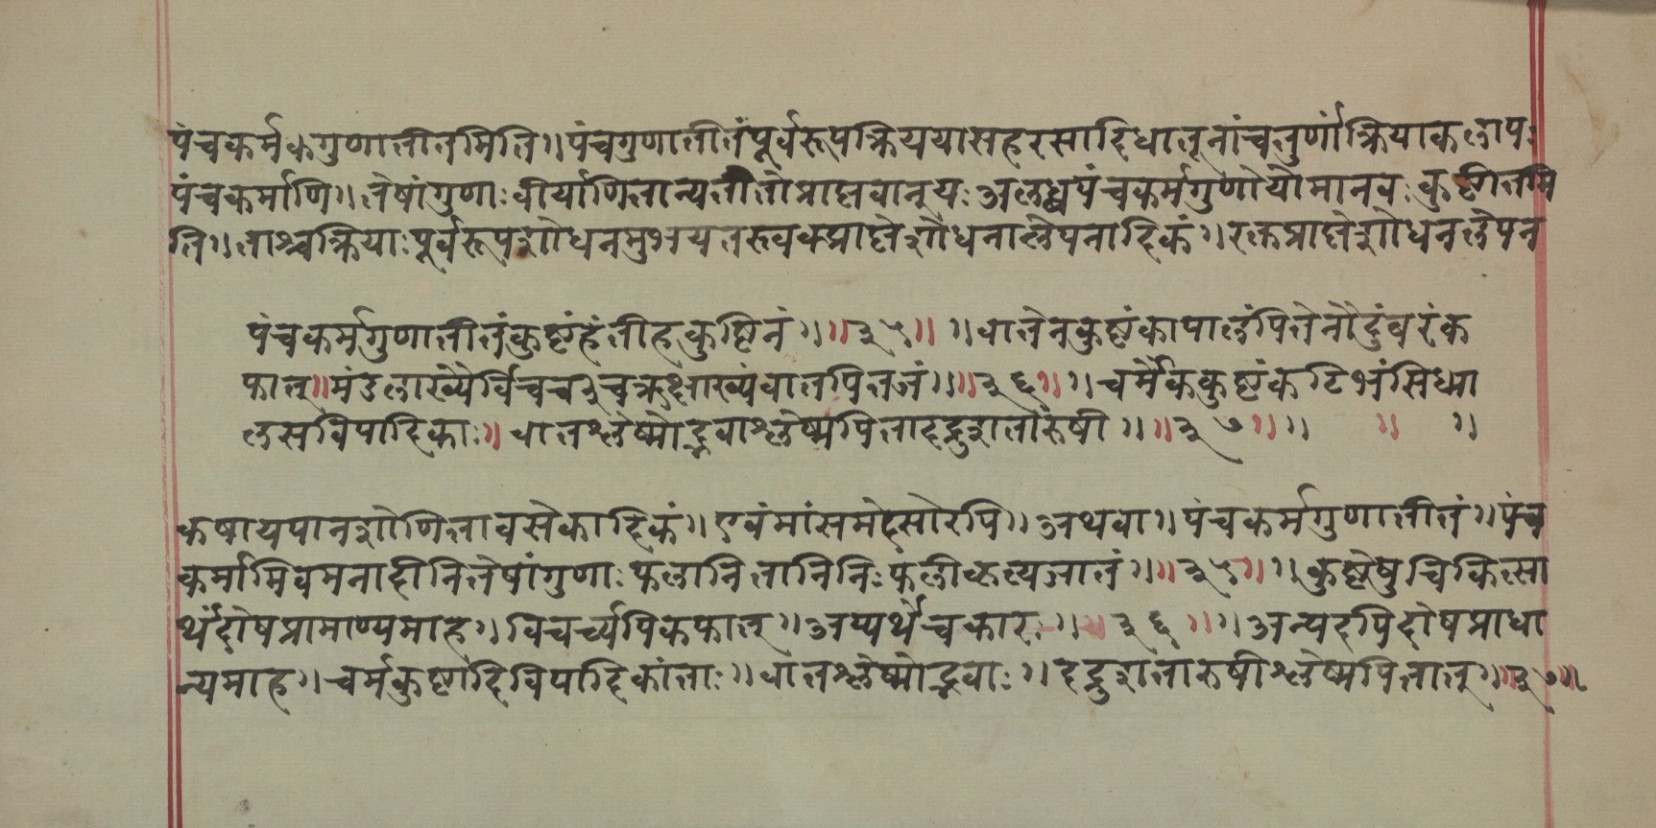 पंचकर्मकगुणातीतमिति।। पंचगुणातीतंपूर्वरूपक्रिययासहरसादिधातूनांचतुर्णांक्रियाकलापः
पंचकर्माणि।। तेषांगुणाः वीर्याणितान्यतीतोप्राप्तवान्यः अलब्धपंचकर्मगुणोयोमानवः कुष्ठीतमि
ति।। ताश्चक्रियाः पूर्वरूपशोधनमुभयतस्त्वक्प्राप्तेशोधनालेपनादिकं।। रक्तप्राप्तेशोधनलेपन
पंचकर्मगुणातीतंकुष्ठंहंतीहकुष्ठिनं।।।। ३५।। ।। वातेनकुष्ठंकापालंपित्तेनौदुंबरंक
फात्।। मंडलाख्यैर्विचचनुचऋक्षाख्यंवातपित्तजं।।।। ३६।। ।। चर्मैककुष्ठंकटिभंसिध्मा
लसविपादिकाः।। वातश्लेष्मोद्भवाश्लेष्मपित्ताद्दद्रुशतारुंषी।।।। ३७।। ।। ।। ।।
कषायपानशोणितावसेकादिकं।। एवंमांसमेदसोरपि।। अथवा।। पंचकर्मगुणातीतं।। पंच
कर्मामिवमनादीनितेषांगुणाः फलानितानिनिः फलीकृत्यजातं।।।। ३५।। ।। कुष्ठेषुचिकित्सा
र्थंदोषप्रामाण्यमाह।। विचर्च्यपिकफात्।। अप्यर्थेचकारः।। ।। ३६ ।। ।। अन्यदपिदोषप्राधा
न्यमाह।। चर्मकुष्ठादिविपादिकांताः।। वातश्लेष्मोद्भवाः।। दद्रुशतारुषीश्लेष्मपित्तात्।।।। ३७।।